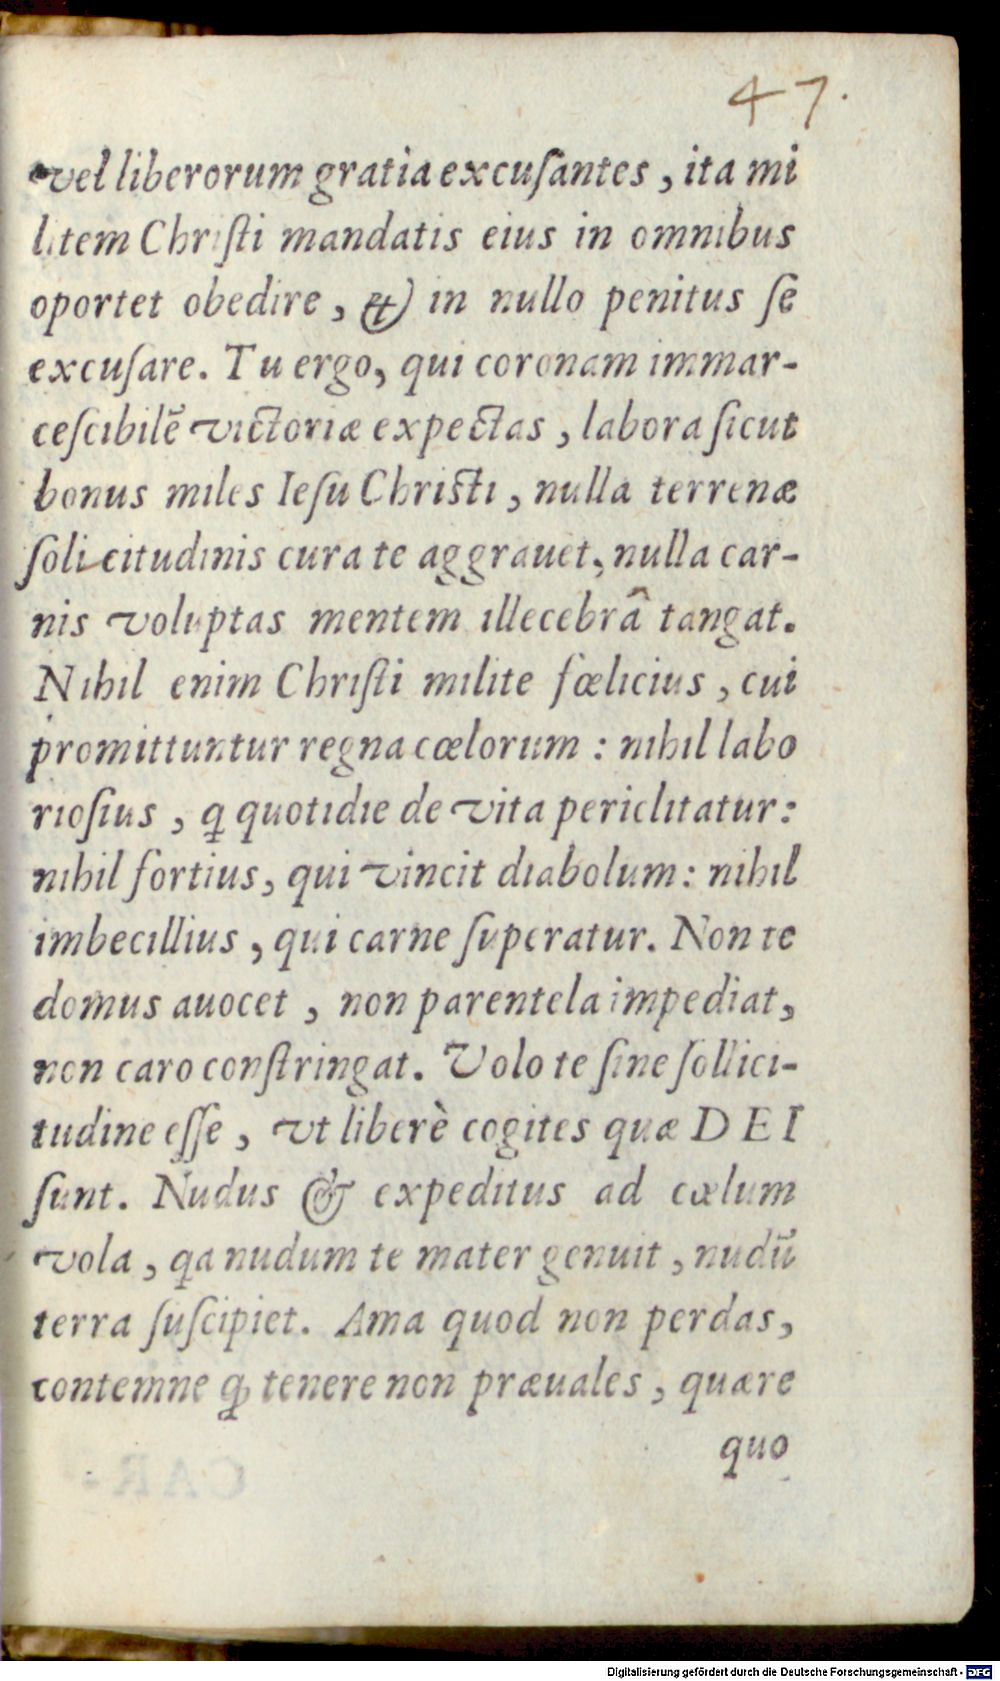 47.
vel liberorum gratia excuſantes, ita mi
litem Chriſti mandatis eius in omnibus
oportet obedire, & in nullo penitus ſe
excuſare. Tu ergo, qui coronam immar-
ceſcibilẽ victoriæ expectas, labora ſicut
bonus miles Ieſu Chriſti, nulla terrenæ
ſolicitudinis cura te aggrauet, nulla car-
nis voluptas mentem illecebrâ tangat.
Nihil enim Chriſti milite fœlicius, cui
promittuntur regna cœlorum: nihil labo
rioſius, q̃ quotidie de vita periclitatur:
nihil fortius, qui vincit diabolum: nihil
imbecillius, qui carne ſuperatur. Non te
domus auocet, non parentela impediat,
non caro conſtringat. Volo te ſine ſollici-
tudine eſſe, vt liberè cogites quæ DEI
ſunt. Nudus & expeditus ad cœlum
vola, qa nudum te mater genuit, nudũ
terra ſuſcipiet. Ama quod non perdas,
contemne ꝙ tenere non præuales, quære
quo
Digitalisierung gefördert durch die Deutsche Forschungsgemeinschaft - DFG